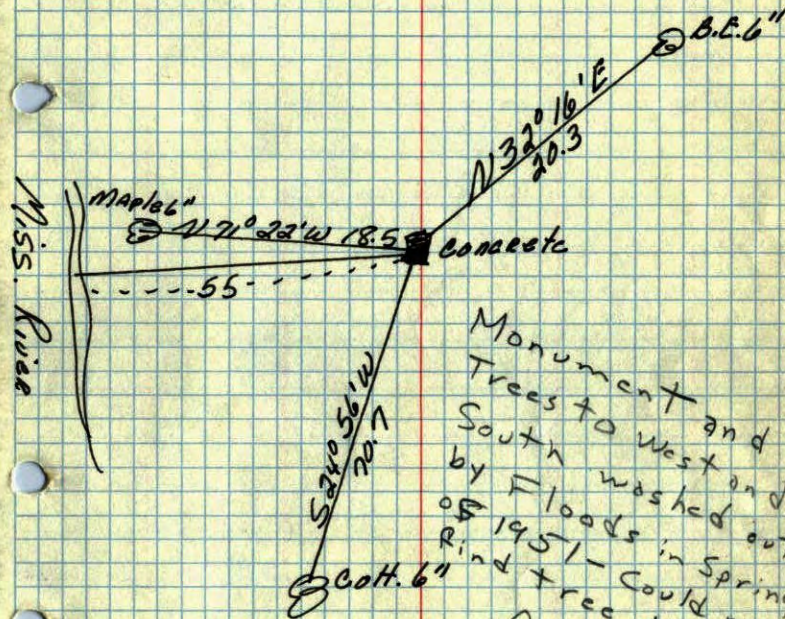 B.E. 6"
N 32° 16' E
20.3
Maple 6"
N 71° 22' W 18.5
concrete
55
Miss. River
S 24° 56' W
70.7
Cott. 6"
Monument and
Trees to West and
South washed out
by Floods in Spring
of 1951 - Could
Find tree